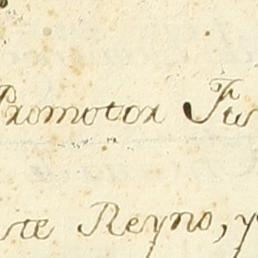 Promotor Fis
ste Reyno, y